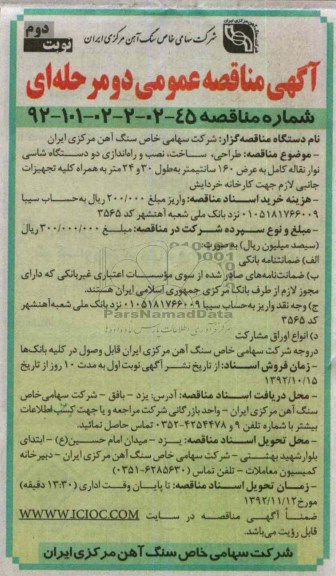 شرکت سهامی خاص سنگ آهن مرکزی ایران
نوبت دوم
آگهی مناقصه عمومی دو مرحله‌ای
شماره مناقصه ۴۵-۰۲-۲-۰۲-۱۰۱-۹۲
نام دستگاه مناقصه‌گزار: شرکت سهامی خاص سنگ آهن مرکزی ایران
- موضوع مناقصه: طراحی، ساخت، نصب و راه‌اندازی دو دستگاه شاسی
نوار نقاله کامل به عرض ۱۶۰ سانتیمتر به‌طول ۳۰ و ۲۴ متر به همراه کلیه تجهیزات
جانبی لازم جهت کارخانه خردایش
- هزینه خرید اسناد مناقصه: واریز مبلغ ۲۰۰/۰۰۰ ریال به‌حساب سیبا
۰۱۰۵۱۸۱۷۶۶۰۰۹ نزد بانک ملی شعبه آهنشهر کد ۳۵۶۵
- مبلغ و نوع سپرده شرکت در مناقصه: مبلغ ۳۰۰/۰۰۰/۰۰۰ ریال
(سیصد میلیون ریال) به‌صورت:
الف) ضمانتنامه بانکی
ب) ضمانت‌نامه‌های صادر شده از سوی مؤسسات اعتباری غیربانکی که دارای
مجوز لازم از طرف بانک مرکزی جمهوری اسلامی ایران هستند.
ج) وجه نقد واریز به‌حساب سیبا ۰۱۰۵۱۸۱۷۶۶۰۰۹ نزد بانک ملی شعبه آهنشهر
کد ۳۵۶۵
د) انواع اوراق مشارکت
در وجه شرکت سهامی خاص سنگ آهن مرکزی ایران قابل وصول در کلیه بانک‌ها
- زمان فروش اسناد: از تاریخ نشر آگهی نوبت اول به مدت ۱۰ روز از تاریخ
۱۳۹۲/۱۰/۱۵
- محل دریافت اسناد مناقصه: آدرس: یزد - بافق - شرکت سهامی خاص
سنگ آهن مرکزی ایران - واحد بازرگانی شرکت مراجعه و یا جهت کسب اطلاعات
بیشتر با شماره تلفن ۹ و ۴۲۵۴۴۷۸-۰۳۵۲ تماس حاصل نمائید.
- محل تحویل اسناد مناقصه: یزد - میدان امام حسین(ع) - ابتدای
بلوار شهید بهشتی - شرکت سهامی خاص سنگ آهن مرکزی ایران - دبیرخانه
کمیسیون معاملات - تلفن تماس (۶۲۸۵۶۳۰-۰۳۵۱)
- زمان تحویل اسناد مناقصه: تا پایان وقت اداری (۱۳:۳۰ دقیقه)
مورخ ۱۳۹۲/۱۱/۱۲
ضمناً آگهی مناقصه در سایت WWW.ICIOC.COM
قابل رؤیت می‌باشد.
شرکت سهامی خاص سنگ آهن مرکزی ایران